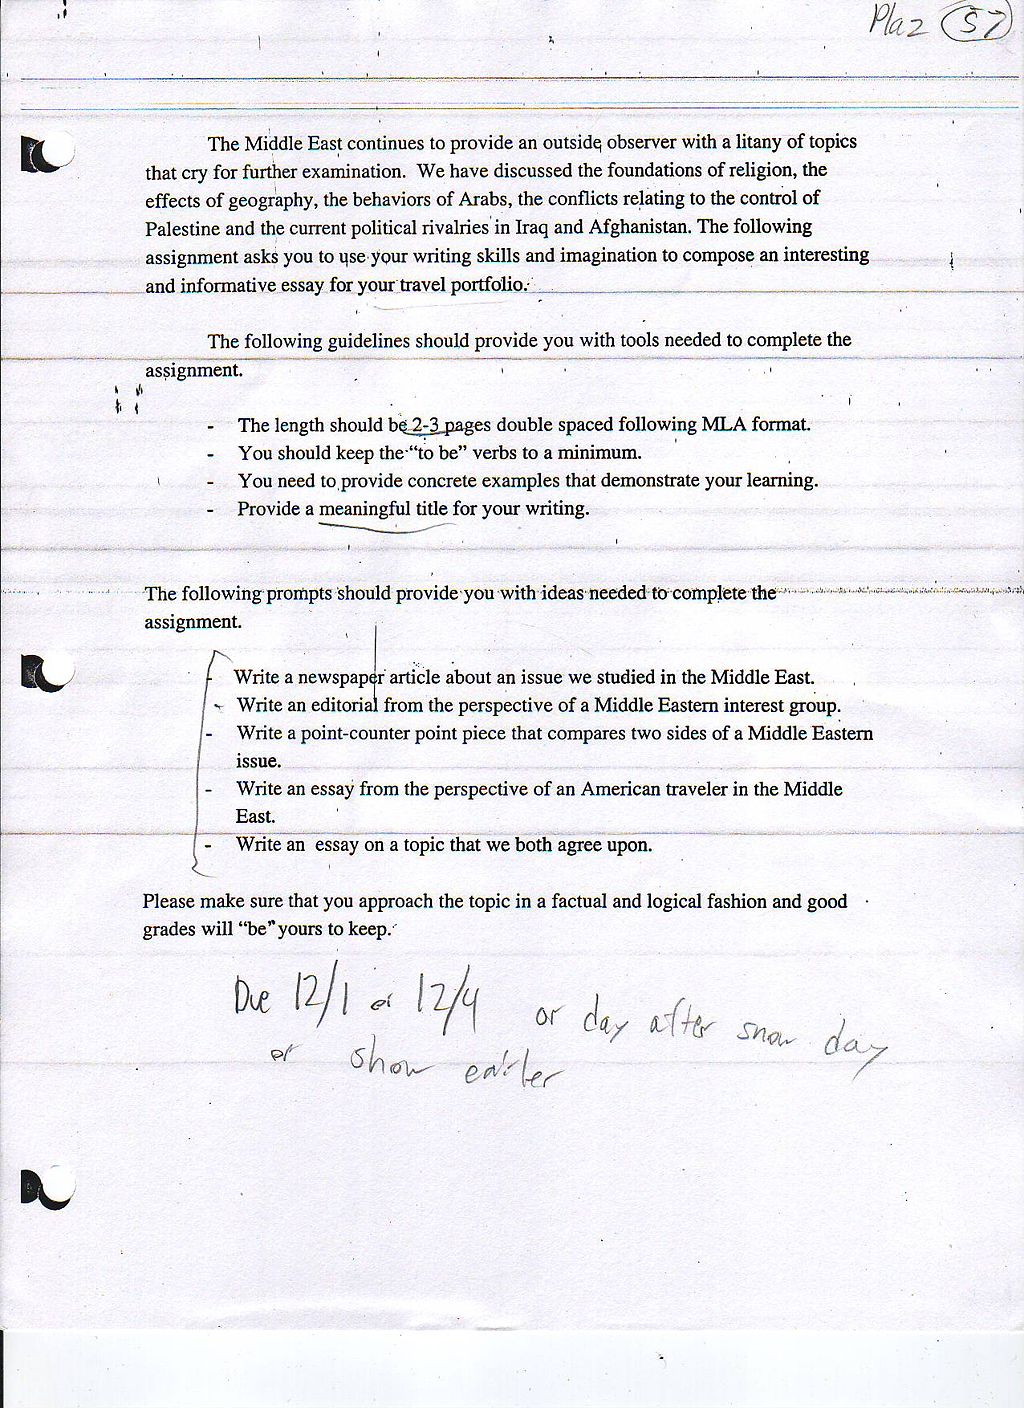 Plaz 57
The Middle East continues to provide an outside observer with a litany of topics
that cry for further examination. We have discussed the foundations of religion, the
effects of geography, the behaviors of Arabs, the conflicts relating to the control of
Palestine and the current political rivalries in Iraq and Afghanistan. The following
assignment asks you to use your writing skills and imagination to compose an interesting
and informative essay for your travel portfolio.
The following guidelines should provide you with tools needed to complete the
assignment.
- The length should be 2-3 pages double spaced following MLA format.
- You should keep the "to be" verbs to a minimum.
- You need to provide concrete examples that demonstrate your learning.
- Provide a meaningful title for your writing.
The following prompts should provide you with ideas needed to complete the
assignment.
- Write a newspaper article about an issue we studied in the Middle East.
- Write an editorial from the perspective of a Middle Eastern interest group.
- Write a point-counter point piece that compares two sides of a Middle Eastern
issue.
- Write an essay from the perspective of an American traveler in the Middle
East.
- Write an essay on a topic that we both agree upon.
Please make sure that you approach the topic in a factual and logical fashion and good
grades will "be" yours to keep.
Due 12/1 or 12/4 or day after snow day
or show earlier